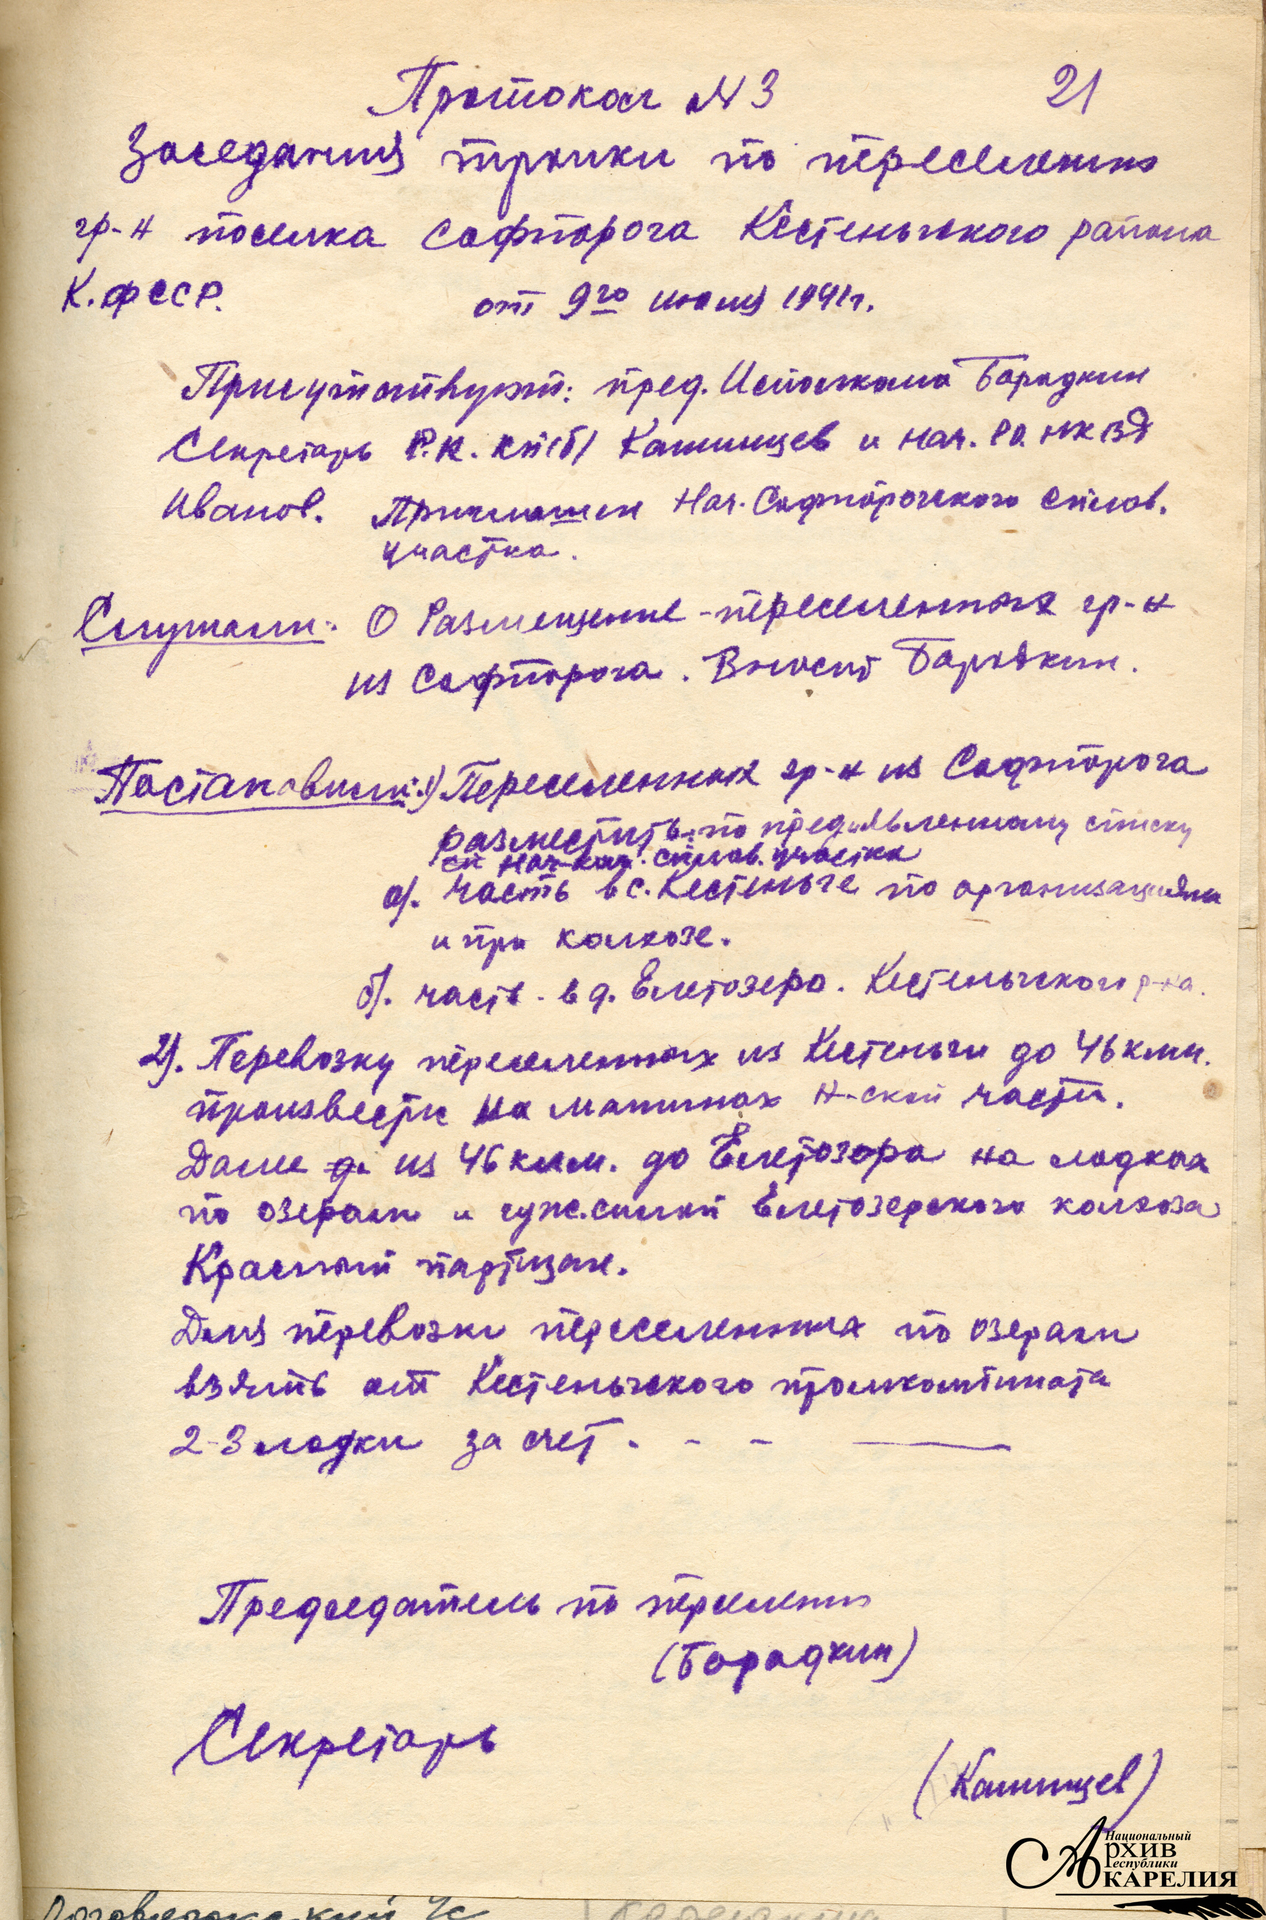 Протокол № 3 21
Заседания тройки по переселению
гр-н поселка Софпорога Кестеньгского района
К.ФССР. от 9го июля 1941г.
Присутствуют: пред. Исполкома Бородкин
Секретарь Р.К. КП(б) Кашинцев и нач. РО НКВД
Иванов. Приглашен Нач. Софпорогского сплав.
участка.
Слушали: О Размещение переселенных гр-н
из Софпорога. Вносит Бородкин.
Постановили: 1) Переселенных гр-н из Софпорога
разместить по предъявленному списку
сплав. участка
а). часть в с. Кестеньге по организациям
и при колхозе.
б). часть в д. Елетозеро. Кестеньгского р-на.
2). Перевозку переселенных из Кестеньги до 46 клм.
произвести на машинах Н-ской части.
Далее из 46 клм. до Елетозора на лодках
по озерам и гуж.силой Елетозерского колхоза
Красный партизан.
Для перевозки переселенных по озерам
взять от Кестеньгского промкомбината
2-3 лодки за счет. - - —
Председатель по переселению
(Бородкин)
Секретарь
(Кашинцев)
Национальный
АРХИВ
Республики
КАРЕЛИЯ